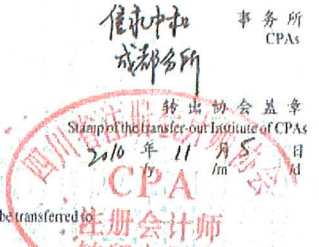 信永中和 事务所
CPAs
成都分所
转出协会盖章
Stamp of the transfer-out Institute of CPAs
2010 年 11 月 5 日
/y /m /d
四川省注册会计师协会
CPA
be transferred to
注册会计师